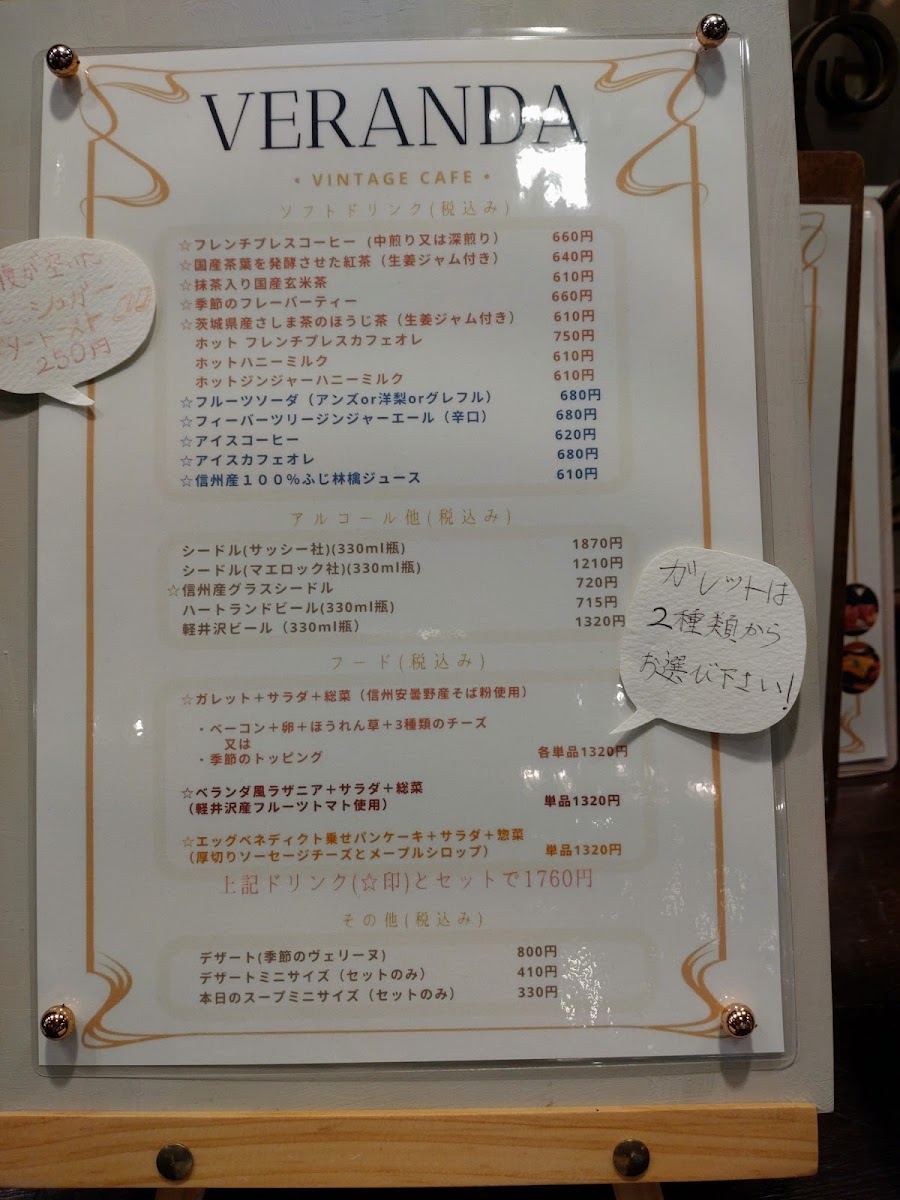 VERANDA
• VINTAGE CAFE •
ソフトドリンク(税込み)
☆フレンチプレスコーヒー (中煎り又は深煎り) 660円
☆国産茶葉を発酵させた紅茶（生姜ジャム付き） 640円
☆抹茶入り国産玄米茶 610円
☆季節のフレーバーティー 660円
☆茨城県産さしま茶のほうじ茶（生姜ジャム付き） 610円
ホット フレンチプレスカフェオレ 750円
ホットハニーミルク 610円
ホットジンジャーハニーミルク 610円
☆フルーツソーダ（アンズor洋梨orグレフル） 680円
☆フィーバーツリージンジャーエール（辛口） 680円
☆アイスコーヒー 620円
☆アイスカフェオレ 680円
☆信州産１００％ふじ林檎ジュース 610円
が空いた
シュガー
トースト
250円
アルコール他(税込み)
シードル(サッシー社)(330ml瓶) 1870円
シードル(マエロック社)(330ml瓶) 1210円
☆信州産グラスシードル 720円
ハートランドビール(330ml瓶) 715円
軽井沢ビール（330ml瓶） 1320円
ガレットは
2種類から
お選び下さい!
フード(税込み)
☆ガレット＋サラダ＋総菜（信州安曇野産そば粉使用）
・ベーコン＋卵＋ほうれん草＋3種類のチーズ
又は
・季節のトッピング 各単品1320円
☆ベランダ風ラザニア＋サラダ＋総菜
（軽井沢産フルーツトマト使用） 単品1320円
☆エッグベネディクト乗せパンケーキ＋サラダ＋惣菜
（厚切りソーセージチーズとメープルシロップ） 単品1320円
上記ドリンク(☆印)とセットで1760円
その他(税込み)
デザート(季節のヴェリーヌ) 800円
デザートミニサイズ（セットのみ） 410円
本日のスープミニサイズ（セットのみ） 330円